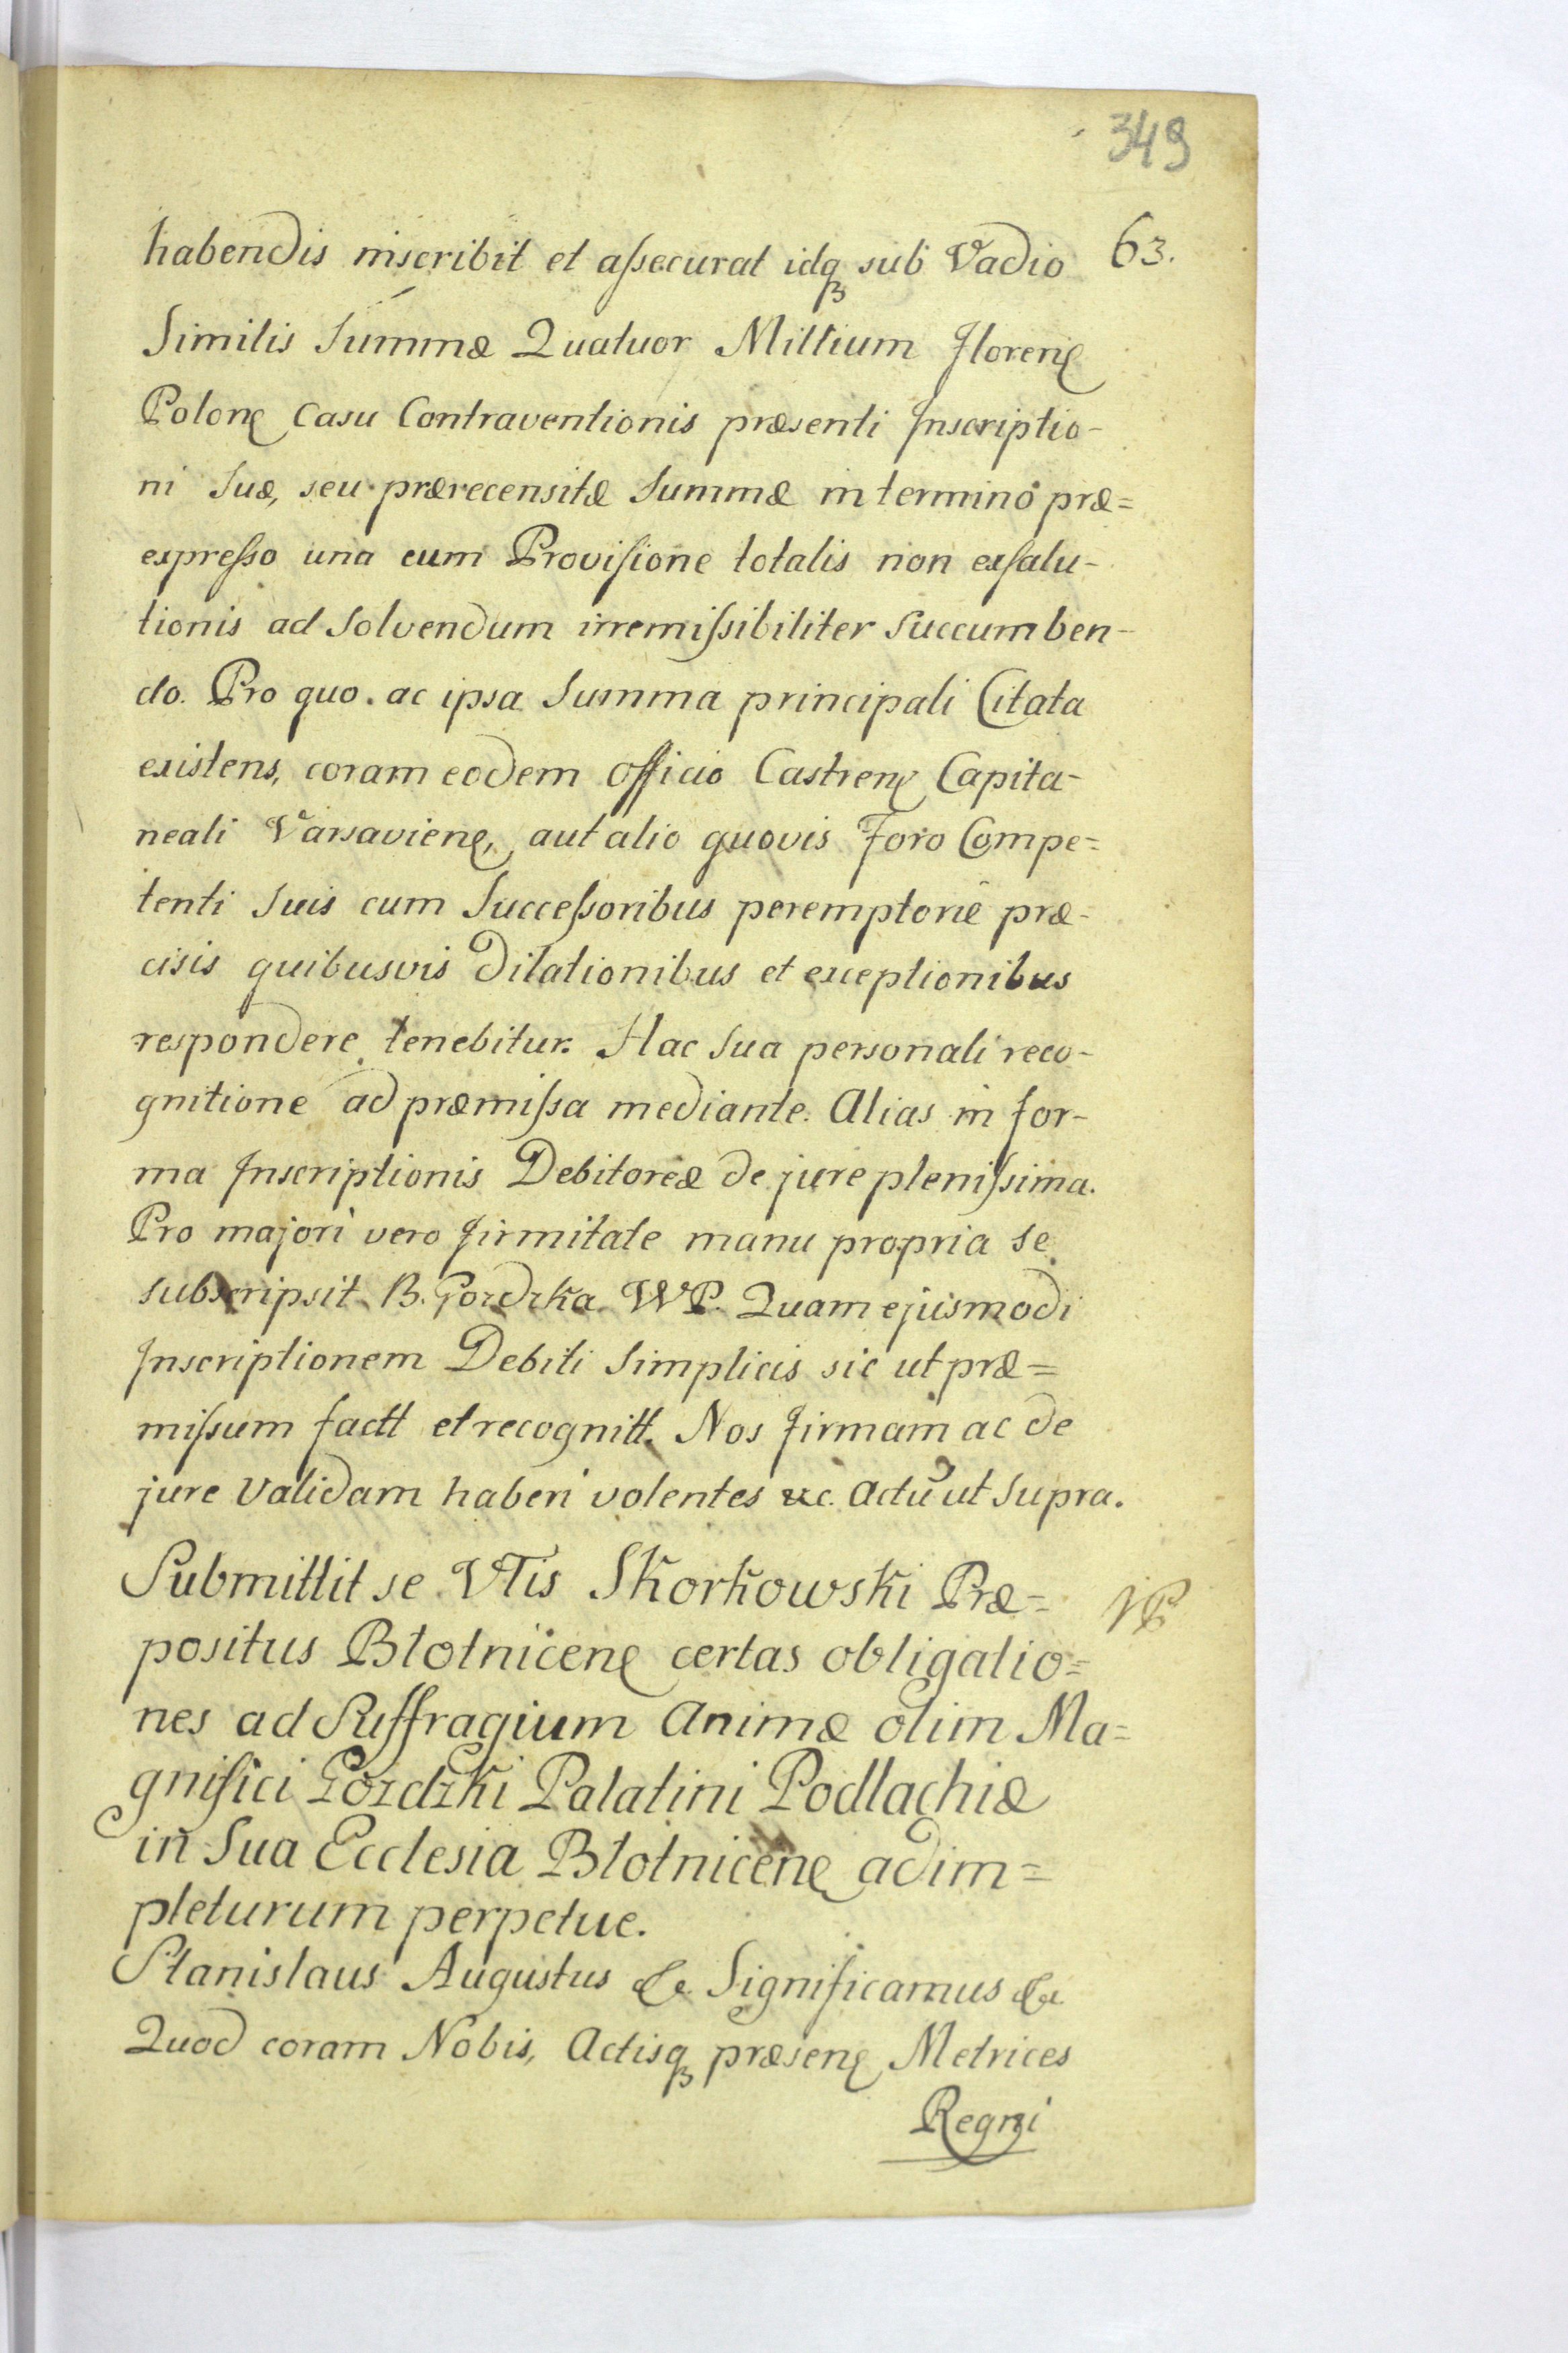 349
63.
habendis inscribit et aſsecurat idq₃ sub Vadio
Similis Summæ Quatuor Millium Florenꝭ
Polonꝭ Casu Contraventionis præsenti Inscriptio-
ni Suæ, seu prærecensitæ Summæ in termino præ=
expreſso una cum Proviſione totalis non exſalu-
tionis ad Solvendum irremiſsibiliter Succumben-
do. Pro quo. ac ipsa Summa principali Citata
existens, coram eodem officio Castrenꝭ Capita-
neali Varsavienꝭ, aut alio quovis Foro Compe=
tenti Suis cum Succeſsoribus peremptorie præ-
cisis quibusvis Dilationibus et exceptionibus
respondere tenebitur. Hac Sua personali reco-
gnitione ad præmiſsa mediante. Alias in for-
ma Inscriptionis Debitoreæ de jure pleniſsima.
Pro majori vero firmitate manu propria se
subscripsit B. Gozdzka WP. Quam ejusmodi
Inscriptionem Debiti Simplicis sic ut præ=
miſsum factt et recognitt. Nos firmam ac de
jure validam haberi volentes &c. Actũ ut Supra.
Submittit se VTis Skorkowski Præ=
positus Błotnicenꝭ certas obligatio=
nes ad Suffragium Animæ olim Ma=
gnifici Gozdzki Palatini Podlachiæ
in Sua Ecclesia Błotnicenꝭ adim=
pleturum perpetue.
Stanislaus Augustus &c Significamus &c
Quod coram Nobis, Actisq₃ præsenꝭ Metrices
Regni